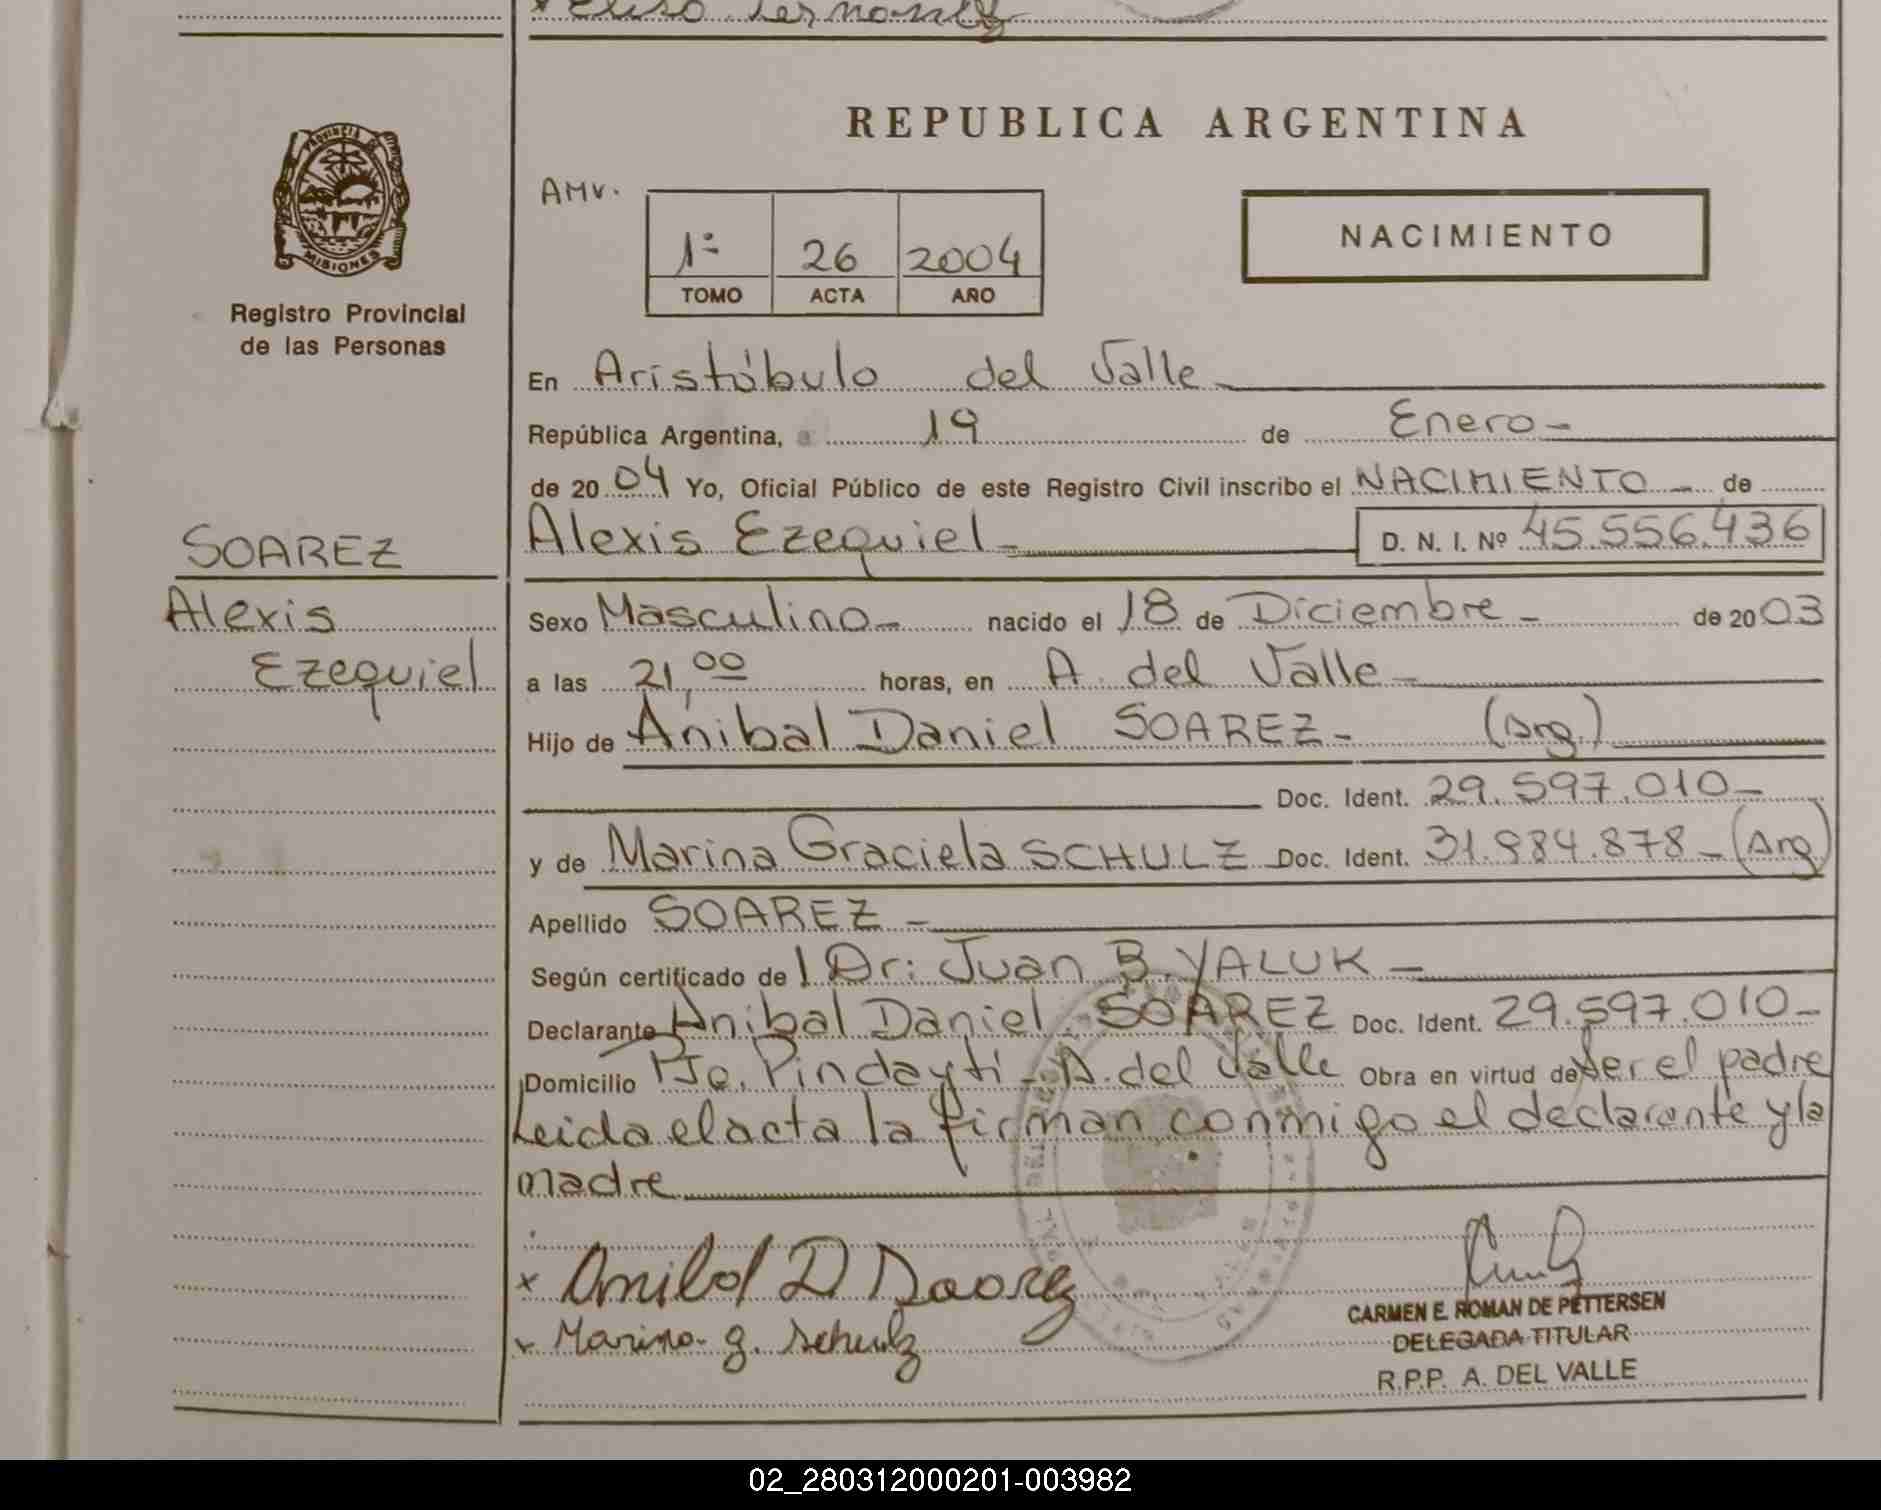 Fernandez
REPUBLICA ARGENTINA
PROVINCIA
MISIONES
Registro Provincial
de las Personas
AMV.
1º 26 2004
TOMO ACTA AÑO
NACIMIENTO
En Aristóbulo del Valle
República Argentina, a 19 de Enero
de 2004 Yo, Oficial Público de este Registro Civil inscribo el NACIMIENTO de
SOAREZ
Alexis Ezequiel D. N. I. Nº 45.556.436
Alexis
Ezequiel
Sexo Masculino nacido el 18 de Diciembre de 2003
a las 21,00 horas, en A. del Valle
Hijo de Anibal Daniel SOAREZ (Arg.)
Doc. Ident. 29.597.010
y de Marina Graciela SCHULZ Doc. Ident. 31.984.878 (Arg)
Apellido SOAREZ
Según certificado del Dr: Juan B. YALUK
Declarante Anibal Daniel SOAREZ Doc. Ident. 29.597.010
Domicilio Pje. Pindaytí - A. del Valle Obra en virtud de Ser el padre
Leida el acta la firman conmigo el declarante y la
madre
x Anibal D Soarez
x Marina g. Schulz
CARMEN E. ROMAN DE PETTERSEN
DELEGADA TITULAR
R.P.P. A. DEL VALLE
02_280312000201-003982